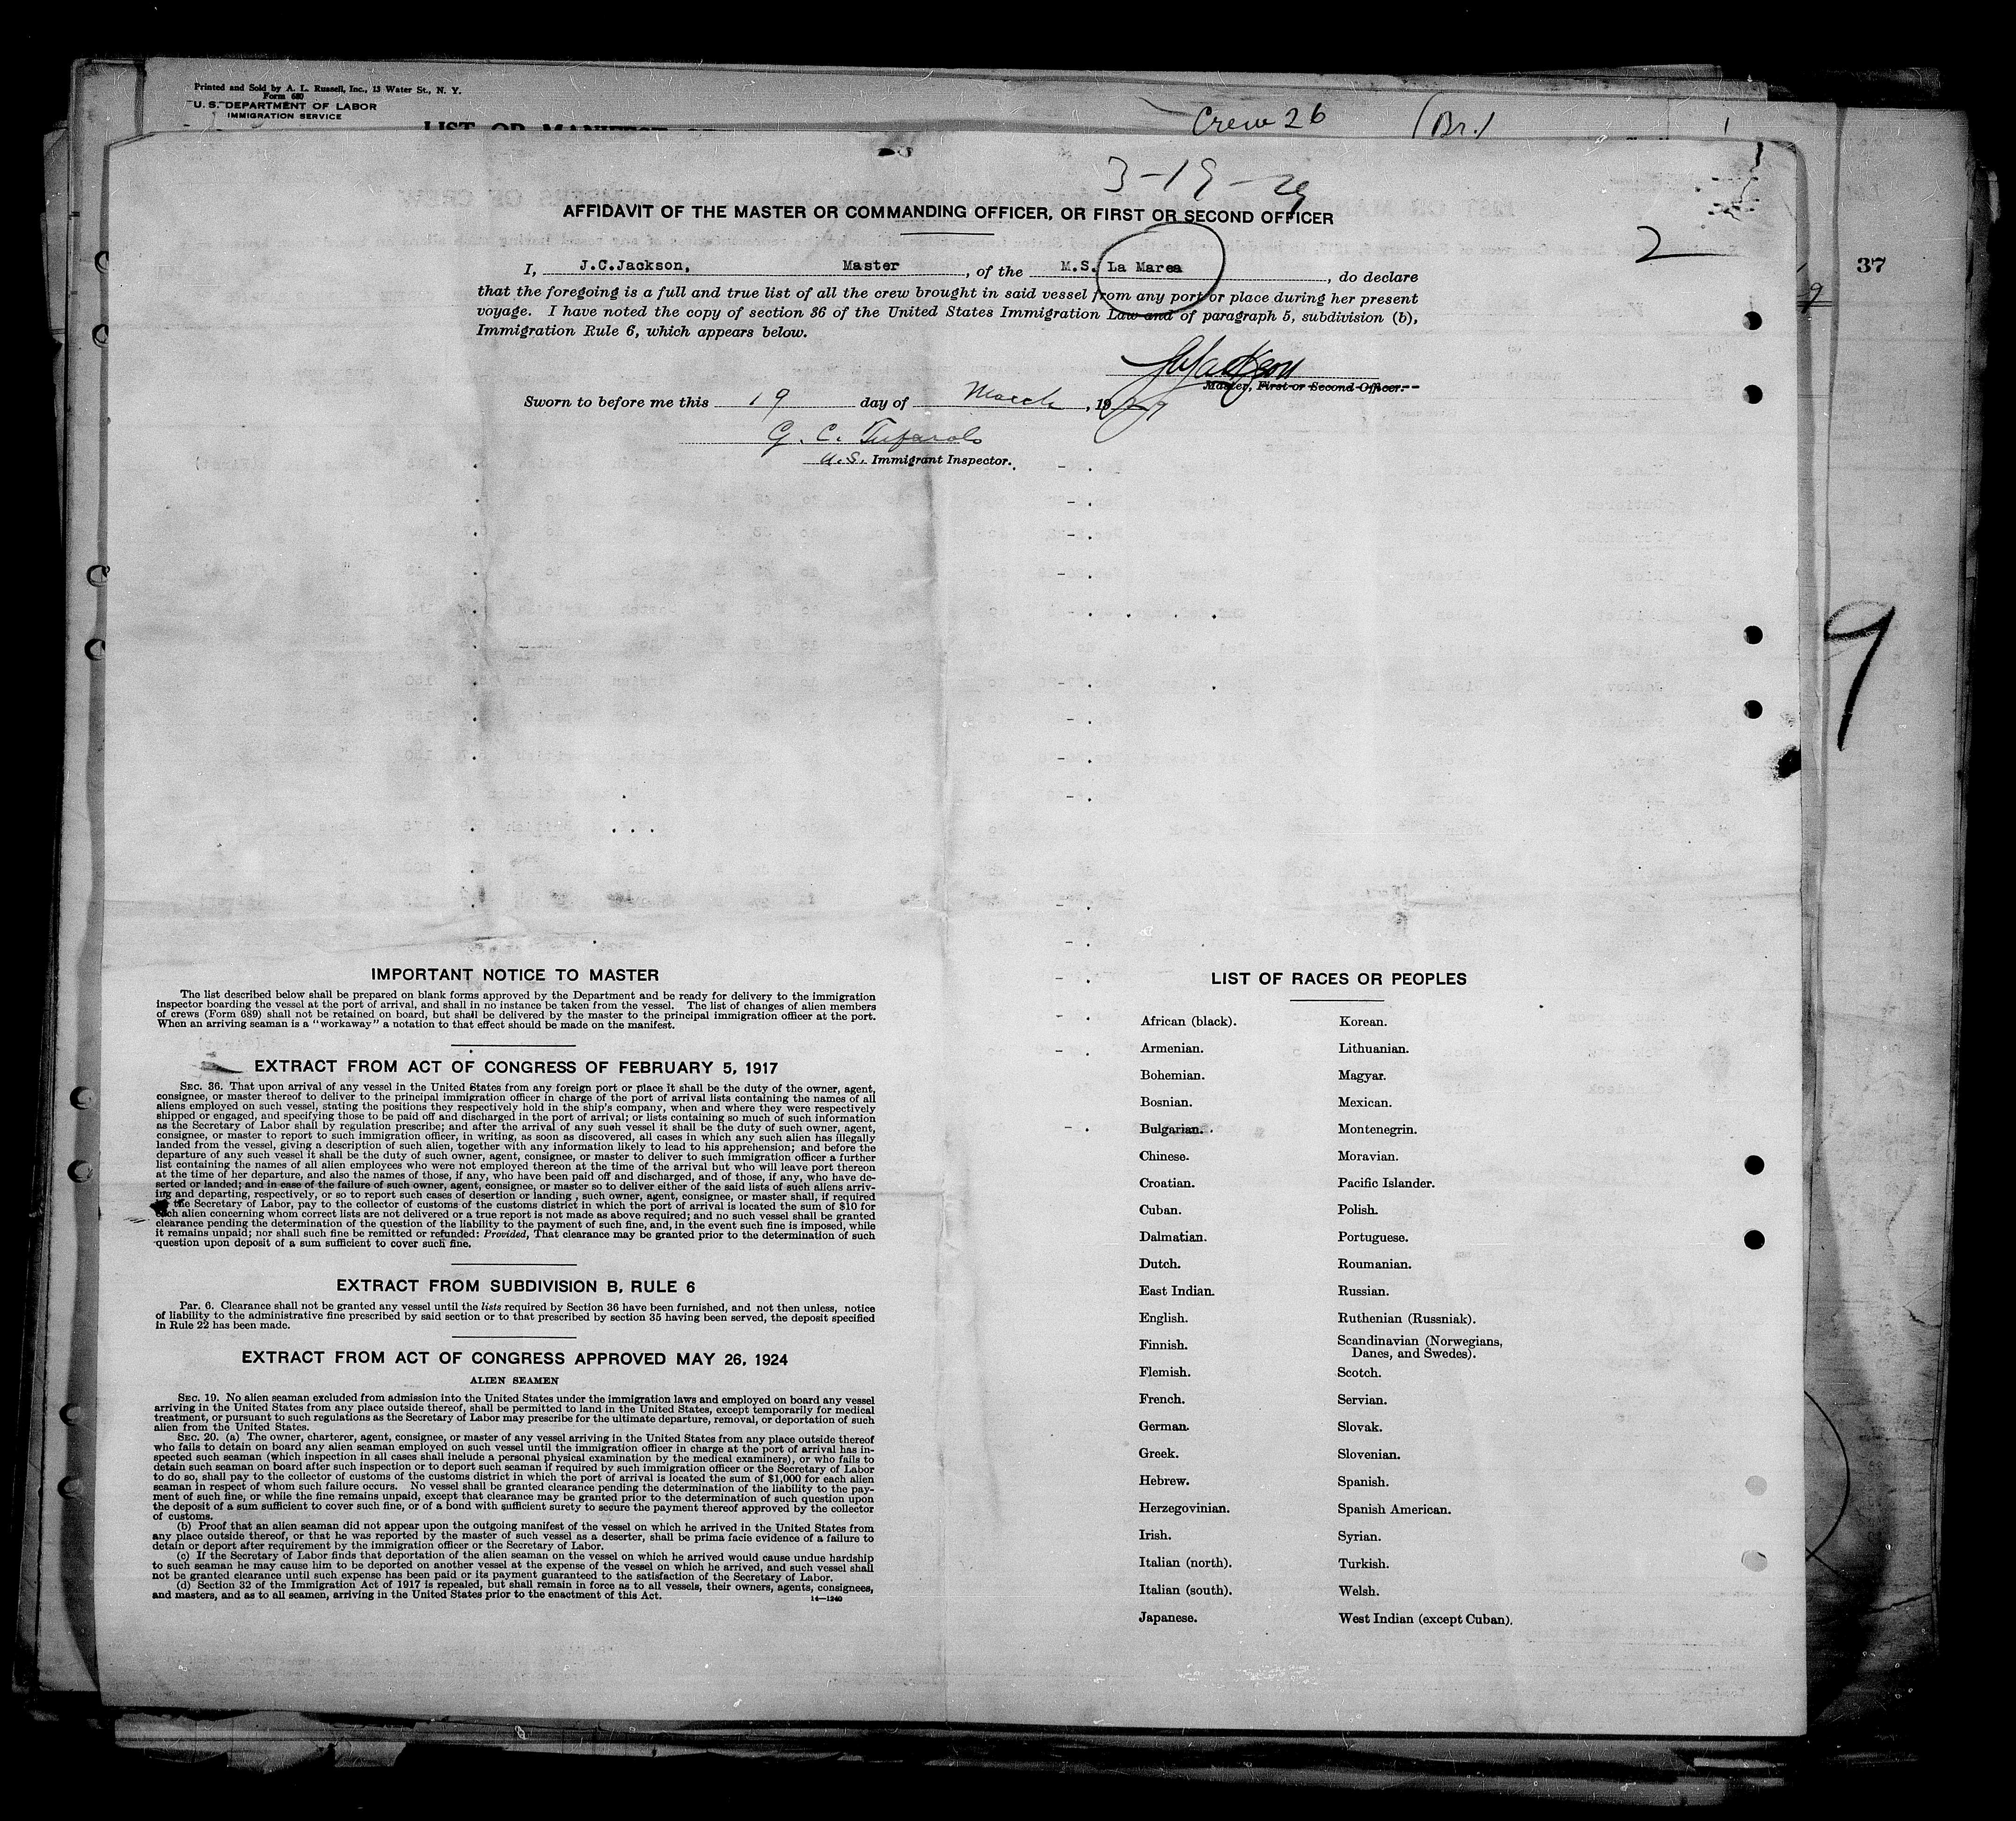 Printed and Sold by A. L. Russell, Inc., 13 Water St., N. Y.
Form 680
U. S. DEPARTMENT OF LABOR
IMMIGRATION SERVICE
Crew 26 (Br.)
3-19-29
AFFIDAVIT OF THE MASTER OR COMMANDING OFFICER, OR FIRST OR SECOND OFFICER
2
37
I, J.C.Jackson, Master, of the M.S. La Marea, do declare
that the foregoing is a full and true list of all the crew brought in said vessel from any port or place during her present
voyage. I have noted the copy of section 36 of the United States Immigration Law and of paragraph 5, subdivision (b),
Immigration Rule 6, which appears below.
Master, First or Second Officer.
Sworn to before me this 19 day of March, 1929
G. C.
U.S. Immigrant Inspector.
9
IMPORTANT NOTICE TO MASTER
The list described below shall be prepared on blank forms approved by the Department and be ready for delivery to the immigration
inspector boarding the vessel at the port of arrival, and shall in no instance be taken from the vessel. The list of changes of alien members
of crews (Form 689) shall not be retained on board, but shall be delivered by the master to the principal immigration officer at the port.
When an arriving seaman is a "workaway" a notation to that effect should be made on the manifest.
EXTRACT FROM ACT OF CONGRESS OF FEBRUARY 5, 1917
SEC. 36. That upon arrival of any vessel in the United States from any foreign port or place it shall be the duty of the owner, agent,
consignee, or master thereof to deliver to the principal immigration officer in charge of the port of arrival lists containing the names of all
aliens employed on such vessel, stating the positions they respectively hold in the ship's company, when and where they were respectively
shipped or engaged, and specifying those to be paid off and discharged in the port of arrival; or lists containing so much of such information
as the Secretary of Labor shall by regulation prescribe; and after the arrival of any such vessel it shall be the duty of such owner, agent,
consignee, or master to report to such immigration officer, in writing, as soon as discovered, all cases in which any such alien has illegally
landed from the vessel, giving a description of such alien, together with any information likely to lead to his apprehension; and before the
departure of any such vessel it shall be the duty of such owner, agent, consignee, or master to deliver to such immigration officer a further
list containing the names of all alien employees who were not employed thereon at the time of the arrival but who will leave port thereon
at the time of her departure, and also the names of those, if any, who have been paid off and discharged, and of those, if any, who have de-
serted or landed; and in case of the failure of such owner, agent, consignee, or master so to deliver either of the said lists of such aliens arriv-
ing and departing, respectively, or so to report such cases of desertion or landing , such owner, agent, consignee, or master shall, if required
by the Secretary of Labor, pay to the collector of customs of the customs district in which the port of arrival is located the sum of $10 for
each alien concerning whom correct lists are not delivered or a true report is not made as above required; and no such vessel shall be granted
clearance pending the determination of the question of the liability to the payment of such fine, and, in the event such fine is imposed, while
it remains unpaid; nor shall such fine be remitted or refunded: Provided, That clearance may be granted prior to the determination of such
question upon deposit of a sum sufficient to cover such fine.
EXTRACT FROM SUBDIVISION B, RULE 6
Par. 6. Clearance shall not be granted any vessel until the lists required by Section 36 have been furnished, and not then unless, notice
of liability to the administrative fine prescribed by said section or to that prescribed by section 35 having been served, the deposit specified
in Rule 22 has been made.
EXTRACT FROM ACT OF CONGRESS APPROVED MAY 26, 1924
ALIEN SEAMEN
SEC. 19. No alien seaman excluded from admission into the United States under the immigration laws and employed on board any vessel
arriving in the United States from any place outside thereof, shall be permitted to land in the United States, except temporarily for medical
treatment, or pursuant to such regulations as the Secretary of Labor may prescribe for the ultimate departure, removal, or deportation of such
alien from the United States.
SEC. 20. (a) The owner, charterer, agent, consignee, or master of any vessel arriving in the United States from any place outside thereof
who fails to detain on board any alien seaman employed on such vessel until the immigration officer in charge at the port of arrival has in-
spected such seaman (which inspection in all cases shall include a personal physical examination by the medical examiners), or who fails to
detain such seaman on board after such inspection or to deport such seaman if required by such immigration officer or the Secretary of Labor
to do so, shall pay to the collector of customs of the customs district in which the port of arrival is located the sum of $1,000 for each alien
seaman in respect of whom such failure occurs. No vessel shall be granted clearance pending the determination of the liability to the pay-
ment of such fine, or while the fine remains unpaid, except that clearance may be granted prior to the determination of such question upon
the deposit of a sum sufficient to cover such fine, or of a bond with sufficient surety to secure the payment thereof approved by the collector
of customs.
(b) Proof that an alien seaman did not appear upon the outgoing manifest of the vessel on which he arrived in the United States from
any place outside thereof, or that he was reported by the master of such vessel as a deserter, shall be prima facie evidence of a failure to
detain or deport after requirement by the immigration officer or the Secretary of Labor.
(c) If the Secretary of Labor finds that deportation of the alien seaman on the vessel on which he arrived would cause undue hardship
to such seaman he may cause him to be deported on another vessel at the expense of the vessel on which he arrived, and such vessel shall
not be granted clearance until such expense has been paid or its payment guaranteed to the satisfaction of the Secretary of Labor.
(d) Section 32 of the Immigration Act of 1917 is repealed, but shall remain in force as to all vessels, their owners, agents, consignees,
and masters, and as to all seamen, arriving in the United States prior to the enactment of this Act.
14—1240
LIST OF RACES OR PEOPLES
African (black).
Armenian.
Bohemian.
Bosnian.
Bulgarian.
Chinese.
Croatian.
Cuban.
Dalmatian.
Dutch.
East Indian.
English.
Finnish.
Flemish.
French.
German.
Greek.
Hebrew.
Herzegovinian.
Irish.
Italian (north).
Italian (south).
Japanese.
Korean.
Lithuanian.
Magyar.
Mexican.
Montenegrin.
Moravian.
Pacific Islander.
Polish.
Portuguese.
Roumanian.
Russian.
Ruthenian (Russniak).
Scandinavian (Norwegians,
Danes, and Swedes).
Scotch.
Servian.
Slovak.
Slovenian.
Spanish.
Spanish American.
Syrian.
Turkish.
Welsh.
West Indian (except Cuban).